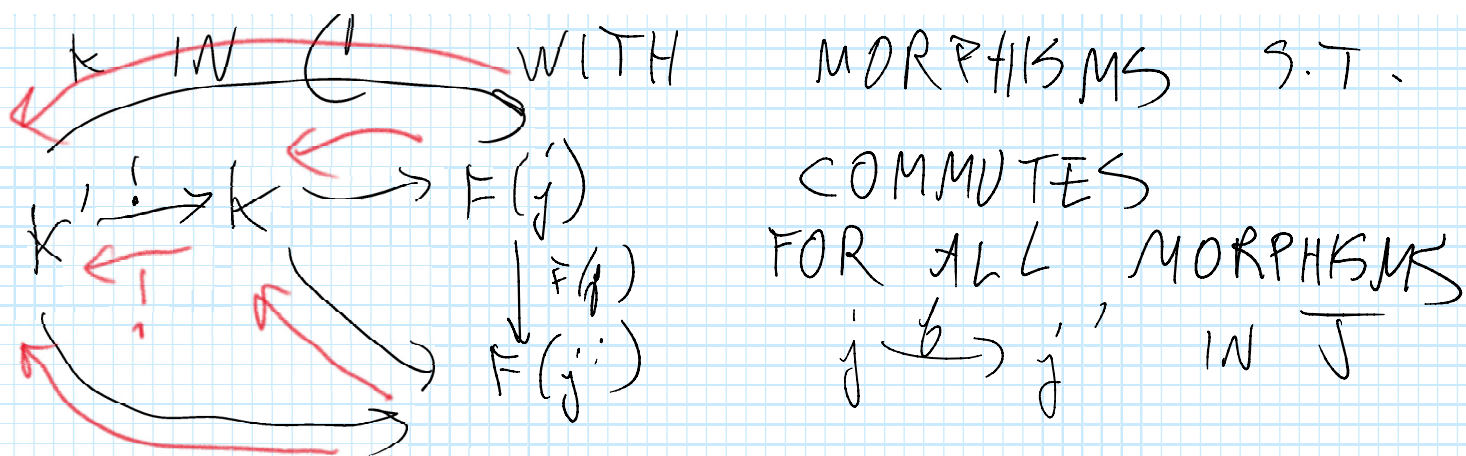 K IN C WITH MORPHISMS S.T.
K' ! K F(j) COMMUTES
! F(f) FOR ALL MORPHISMS
F(j') j f j' IN J